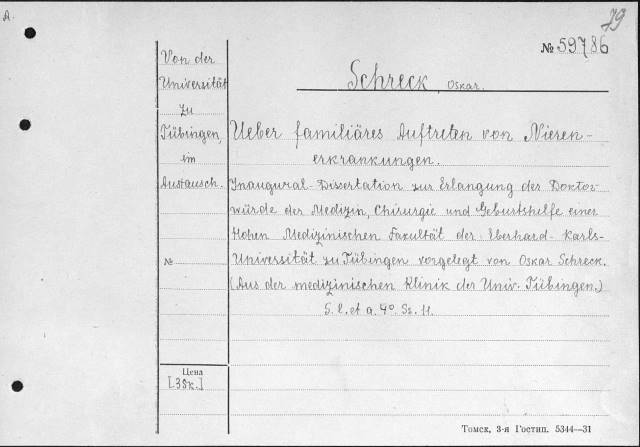 A.
79
№ 59786
Von der
Universität
zu
Tübingen,
im
Austausch.
№
Цена
[38k.]
Schreck, Oskar.
Ueber familiäres Auftreten von Nieren-
erkrankungen.
Inaugural-Dissertation zur Erlangung der Doktor-
würde der Medizin, Chirurgie und Geburtshilfe einer
Hohen Medizinischen Fakultät der Eberhard-Karls-
Universität zu Tübingen vorgelegt von Oskar Schreck.
(Aus der medizinischen Klinik der Univ. Tübingen.)
S. l. et a. 4° Ss. 11.
Томск, 3-я Гостип. 5344—31